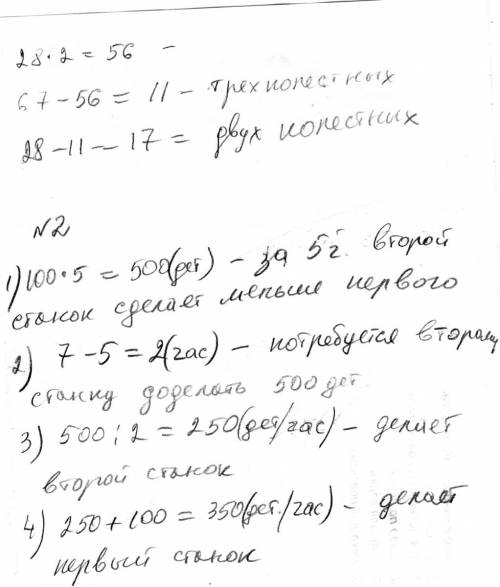 28 · 2 = 56 –
67 – 56 = 11 – трехлопестных
28 – 11 – 17 = двух лопестних
N2
1) 100 · 5 = 500 (дет) – за 5 г. второй
станок сделает меньше первого
2) 7 – 5 = 2 (час) – потребуется второму
станку доделать 500 дет.
3) 500 : 2 = 250 (дет/час) – делает
второй станок
4) 250 + 100 = 350 (дет./час) – делает
первый станок